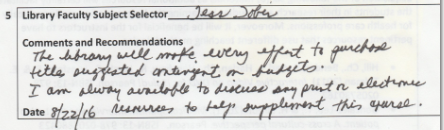 5 Library Faculty Subject Selector Jess Tober
Comments and Recommendations
The library will make every effort to purchase
titles suggested contingent on budgets.
I am alway available to discuss any print or electronic
Date 8/22/16 resources to help supplement this course.